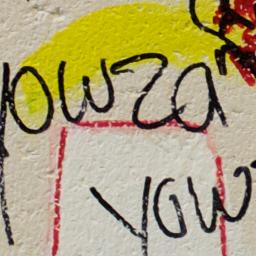 yowza
yow